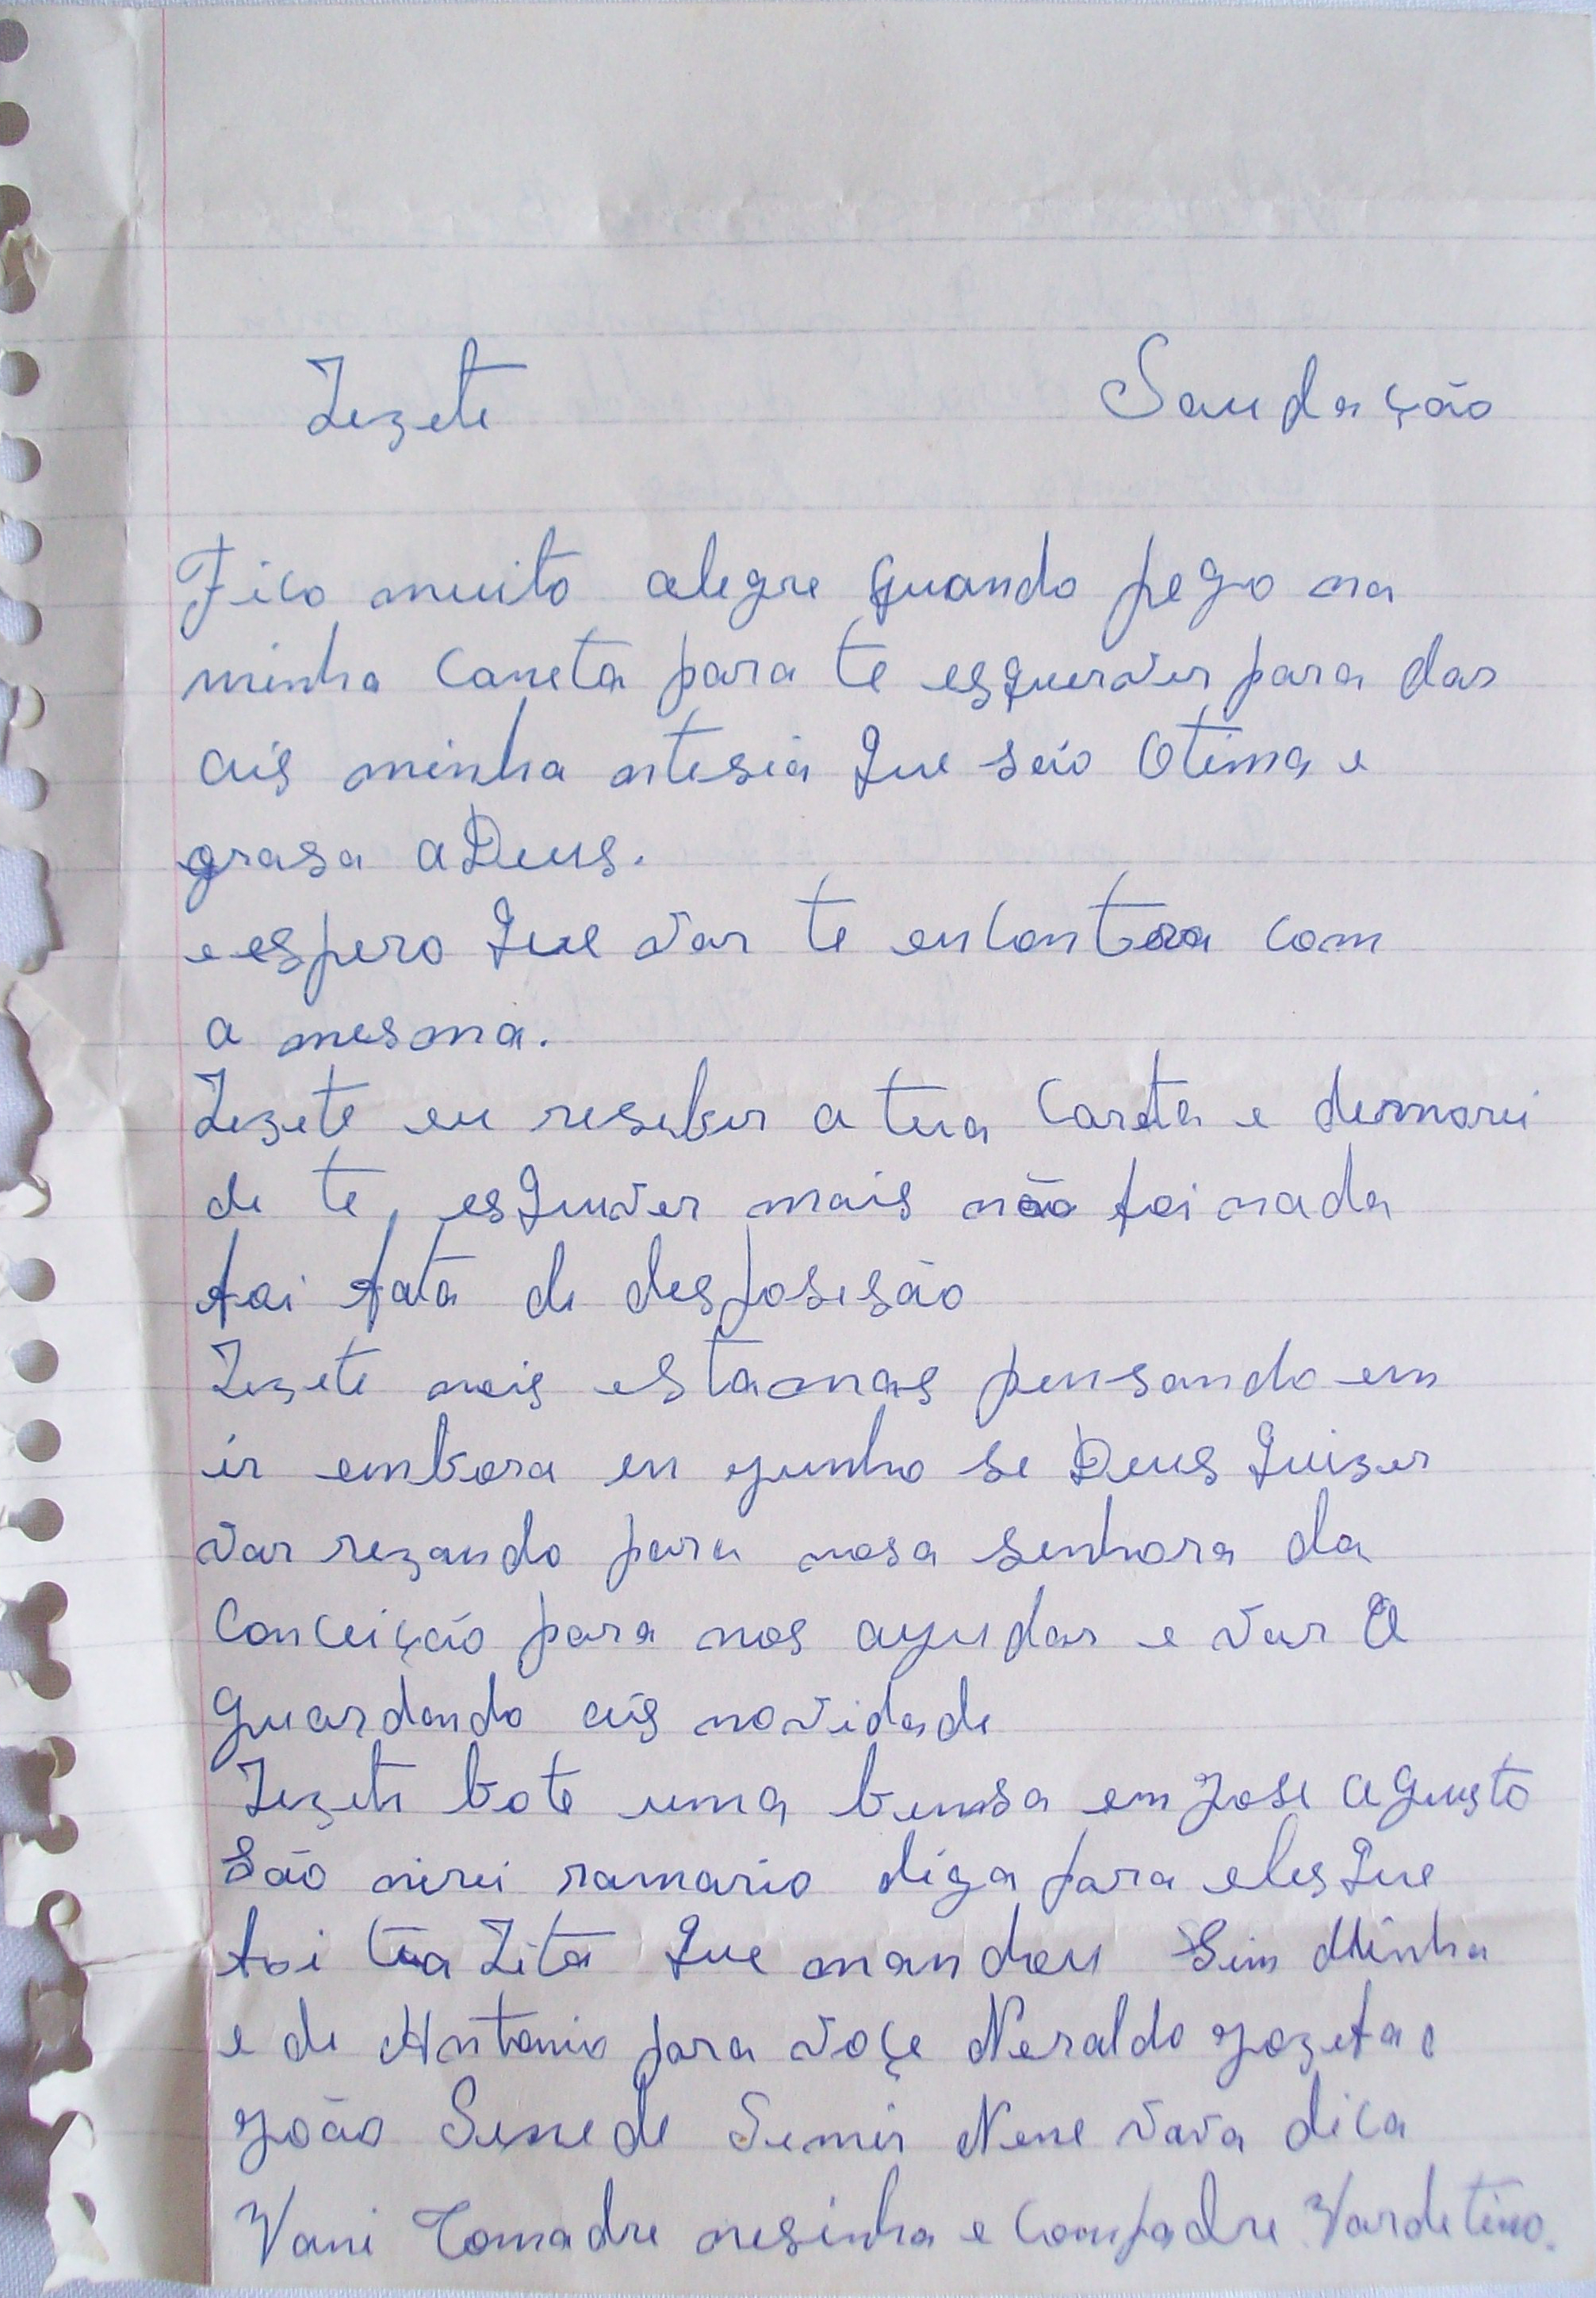 Zezete Saudação
Fico muito alegre quando pego na
minha caneta para te esquerver para dar
ais minha ntisia que saio Otima e
grasa a Deus.
e espero que var te encontra com
a mesma.
Zezete eu reseber a tua Careta e demorei
de te esquwer mais não foi nada
foi fata de desposisão
Zezete nois estamos pensando em
ir embora en yunho se Deus quizer
var rezando para nosa senhora da
Conceição para nos ayudar e var A
guardando ais novidade
Zezete bote uma bensa em Jose Agusto
São nirei ramario diga para eles que
foi tia Zita que mandou Sim Minha
e de Antonio para voçe Neraldo yozefa e
yoão Senede Semir Nene vava dica
Vani Comadre nesinha e Compadre Vardetino.